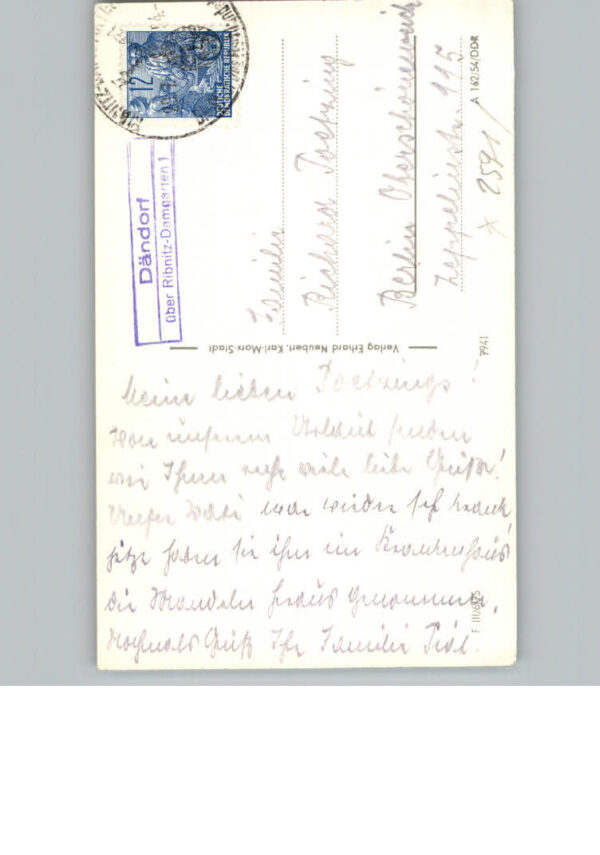 Meine lieben Poetzings!
Von unserem Urlaub senden
wir Ihnen recht viele liebe Grüße!
Unser war wieder sehr krank,
jetzt haben sie ihm im Krankenhaus
die Mandeln heraus genommen.
Nochmals Gruß Ihr Familie
Familie
Richard Poetzing
Berlin Oberschöneweide
Zeppelinstr. 115
12
DEUTSCHE
DEMOKRATISCHE REPUBLIK
Dändorf
über Ribnitz-Damgarten 1
Verlag Erhard Neubert, Karl-Marx-Stadt
7941
A 162/54/DDR
x 2591